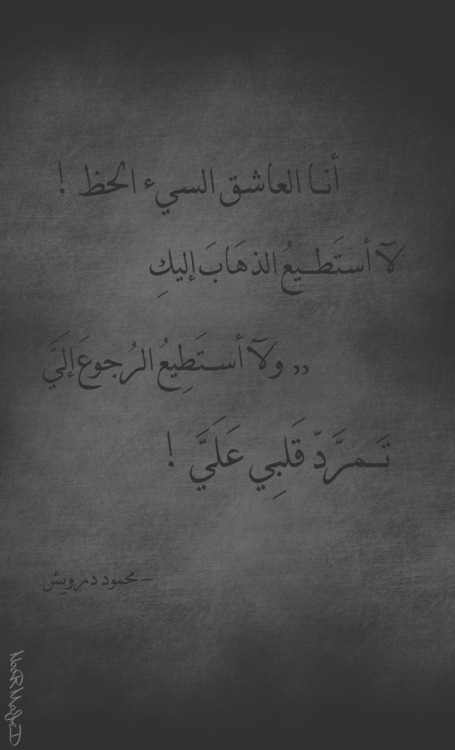 أنـا العاشـق السيـء الحظ !
لآ أستَطـيعُ الذهَابَ إليكِ
,, ولآ أستَطِيعُ الرُجوعَ إلَيَّ
تَـمرَّدّ قَلبِي عَلَيَّ !
– محمود درويش